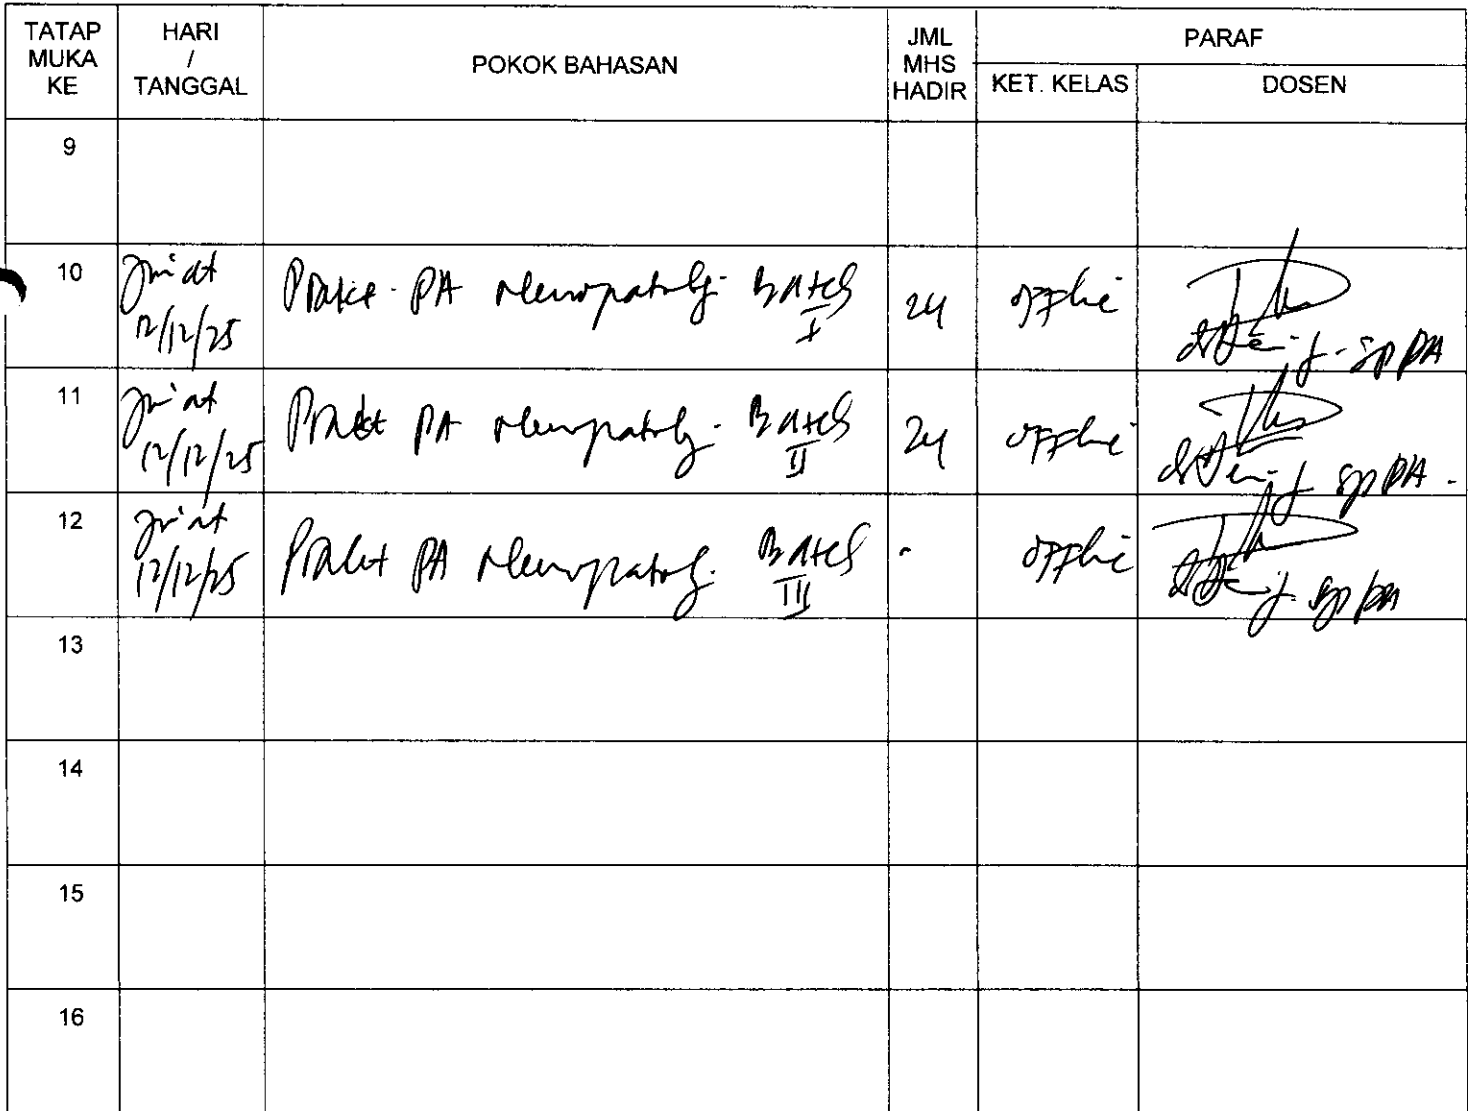 TATAP MUKA KE HARI / TANGGAL POKOK BAHASAN JML MHS HADIR PARAF
KET. KELAS DOSEN
9
10 Jum'at 12/12/25 Prakt. PA Neuropatolg. Batch I 24 offline Sp PA
11 Jum'at 12/12/25 Prakt PA Neuropatolg. Batch II 24 offline Sp PA.
12 Jum'at 12/12/25 Prakt PA Neuropatolg. Batch III - offline Sp PA
13
14
15
16